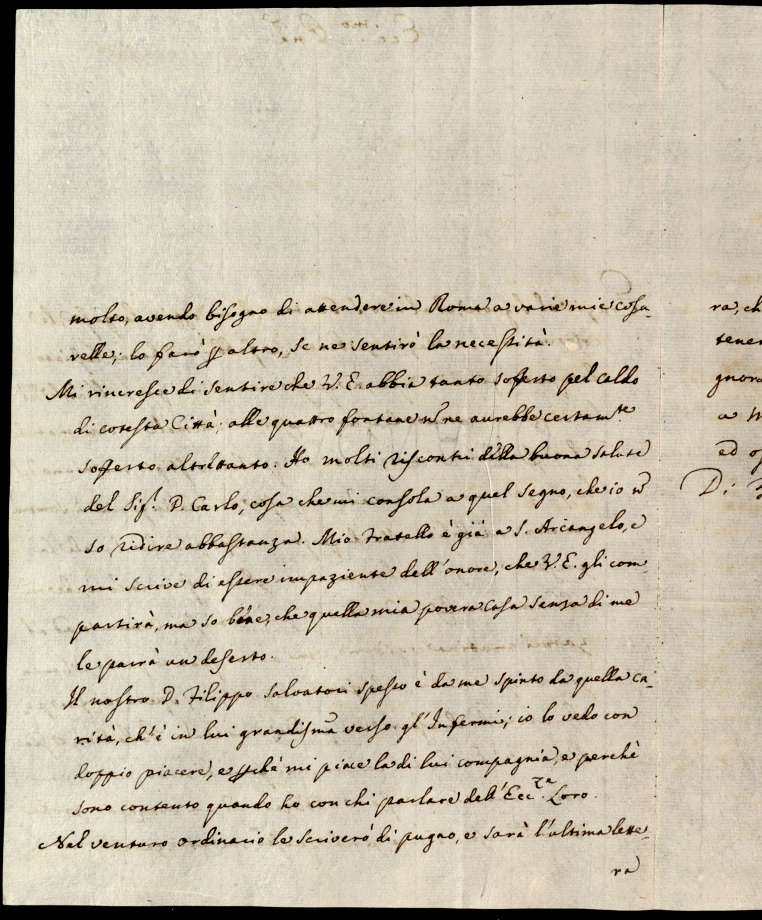 molto, avendo bisogno di attendere in Roma a varie mie cosa-
relle; lo farò p altro, se ne sentirò la necessità.
Mi rincresce di sentire che V. E. abbia tanto sofferto pel caldo
di cotesta Città; alle quattro fontane nõ ne avrebbe certamte
sofferto altrettanto. Ho molti riscontri della buona salute
del Sigr. D. Carlo, cosa che mi consola a quel segno, che io nõ
so ridire abbastanza. Mio Fratello è già a S. Arcangelo, e
mi scrive di essere impaziente dell'onore, che V. E. gli com
partirà, ma so bene, che quella mia povera Casa senza di me
le parrà un deserto.
Il nostro D. Filippo Salvatori spesso è da me spinto da quella ca-
rità, ch'è in lui grandisma verso gl'Infermi; io lo vedo con
doppio piacere, e pchè mi piace la di lui compagnia, e perchè
sono contento quando ho con chi parlare dell'Eccza. Loro.
Nel venturo ordinario le scriverò di pugno, e sarà l'ultima lette-
ra
ra, ch
tener
gnora
a
ed
Di